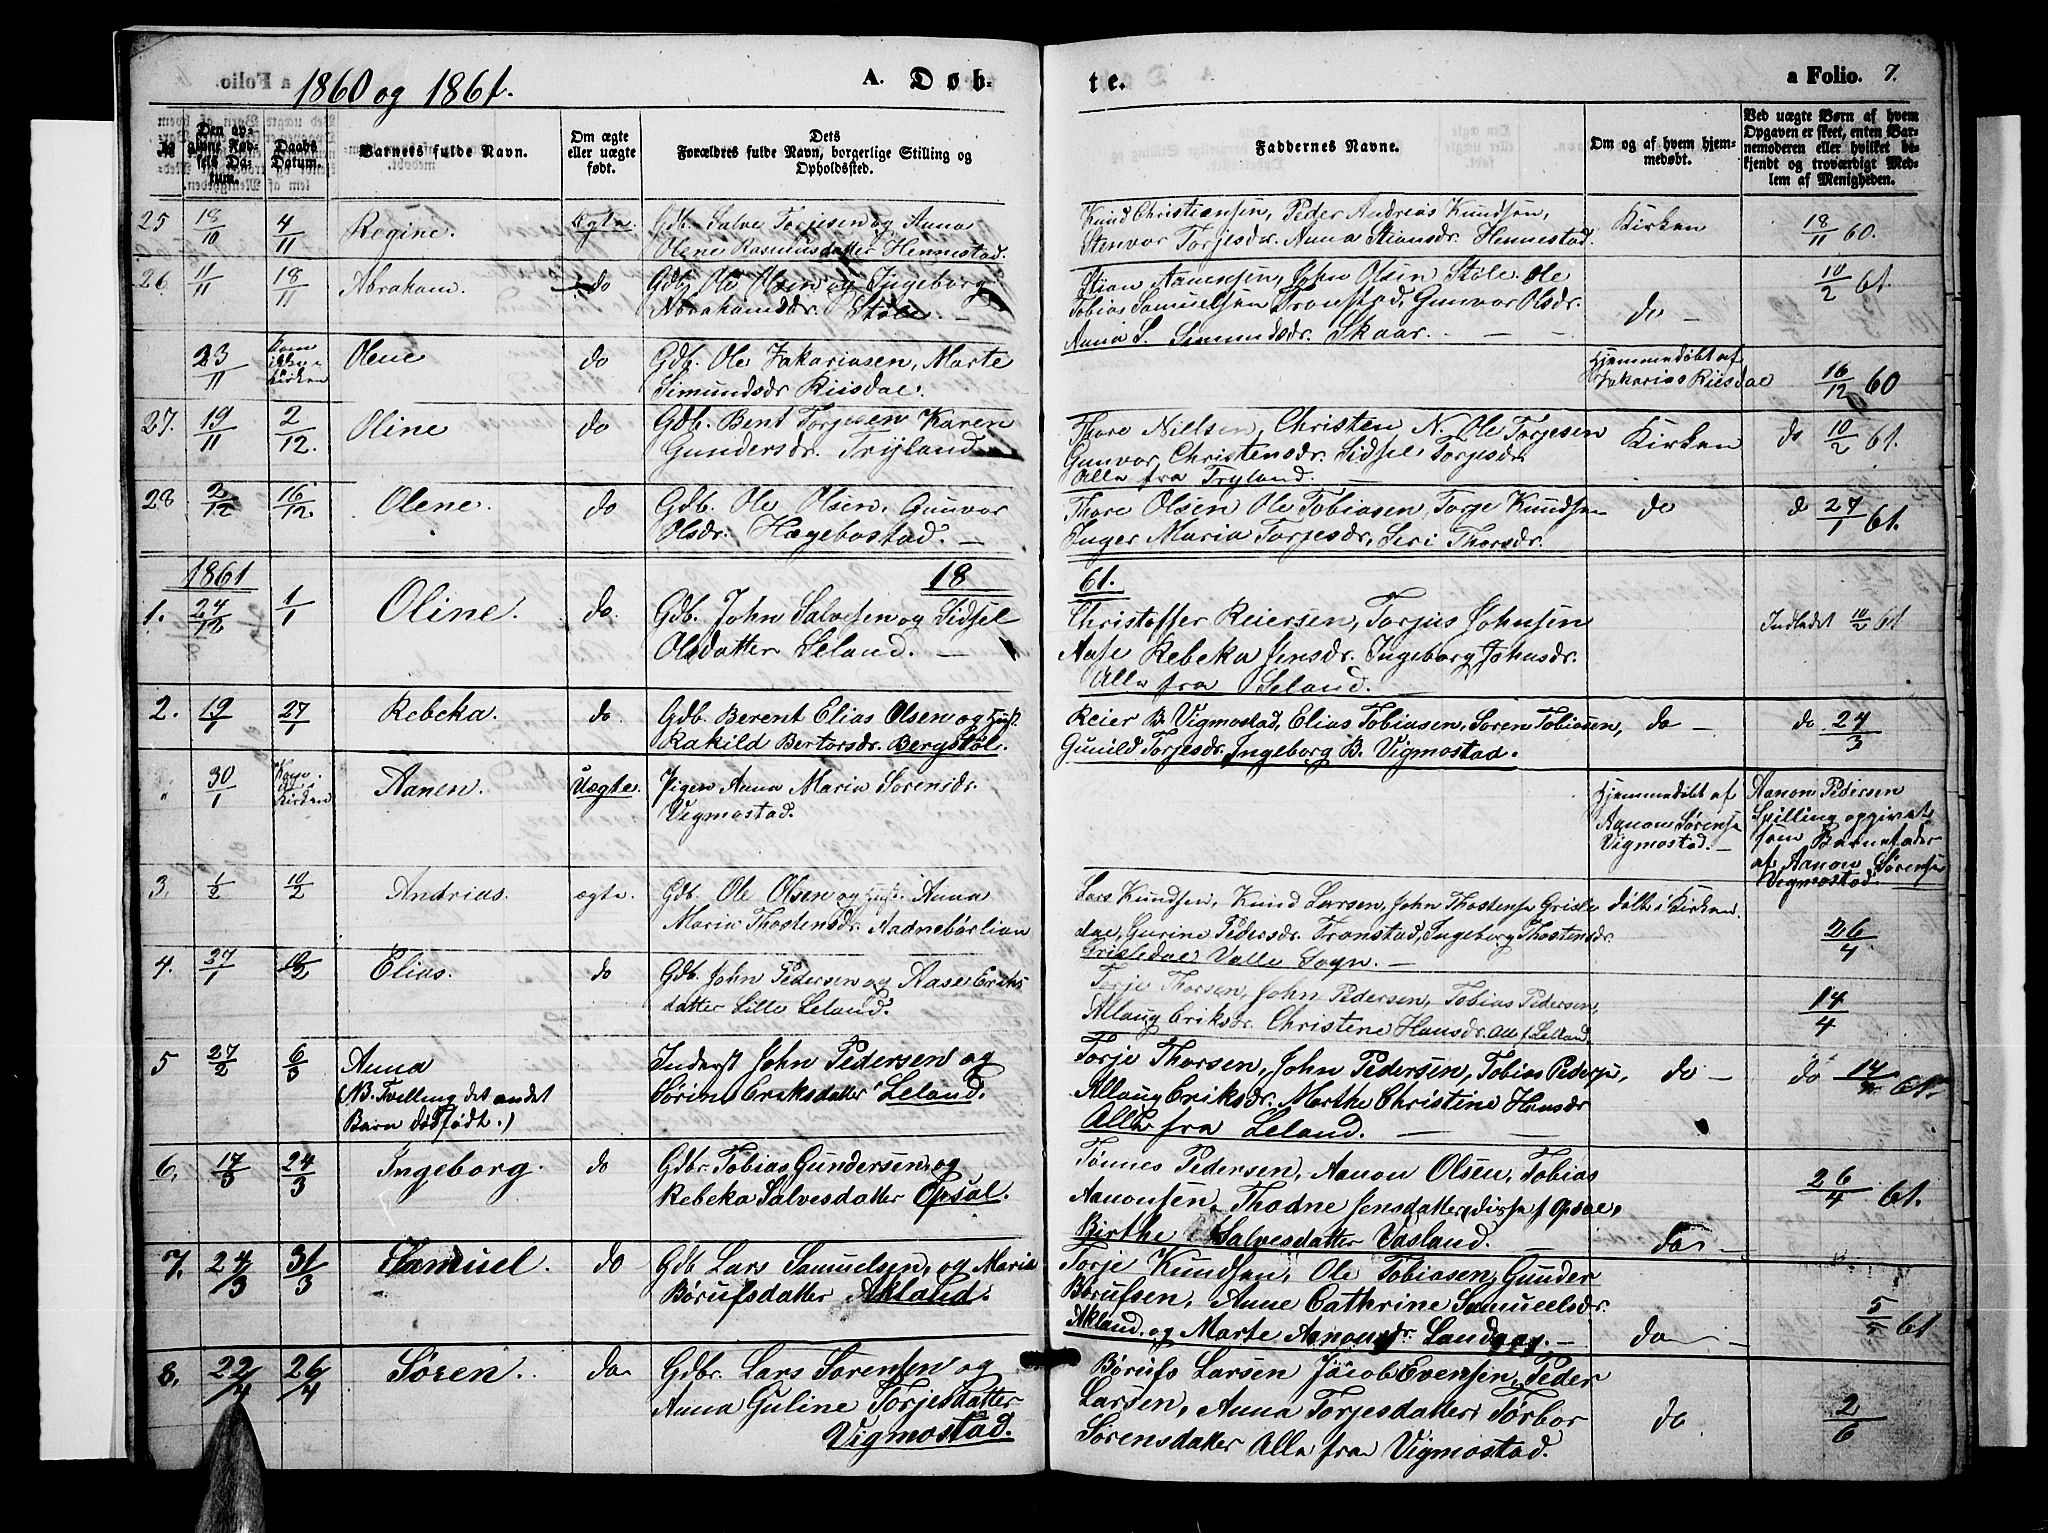 1860 og 1861.
A. Døb-
te.
a Folio. 7.
No
Den op-
givne Fød-
sels Da-
tum.
Daabs
Datum.
Barnets fulde Navn.
Om ægte
eller uægte
født.
Dets
Forældres fulde Navn, borgerlige Stilling og
Opholdssted.
Faddernes Navne.
Om og af hvem hjem-
medøbt.
Ved uægte Børn af hvem
Opgaven er skeet, enten Bar-
nemoderen eller hvilket be-
kjendt og troværdigt Med-
lem af Menigheden.
25 18/10 4/11 Regine. Ægte. Gdb. Salve Torjesen og Anna
Olene Rasmusdatter Hennestad.
Knud Christiansen, Peder Andreas Knudsen,
Stenvor Torjesdr. Anna Stiansdr. Hennestad. Kirken 18/11 60.
26 11/11 18/11 Abraham. do Gdb. Ole Olsen og Ingeborg
Abrahamsdr. Støle. —
Stian Aanensen, John Olsen Støle. Ole
Tobias Samuelsen Tronstad, Gunvor Olsdr.
Anna S. Simundsdr. Skaar. — — — do — 10/2 61.
23/11 Kirken Olene do Gdb. Ole Zakariasen, Marte
Simundsdr Riisdal.
Hjemmedøbt af
Zakarias Riisdal 16/12 60
27. 19/11 2/12. Oline do Gdb. Bent Torjesen Karen
Gundersdr. Tryland
Thore Nielsen, Christen N. Ole Torjesen
Gunvor Christensdr. Sidsel Torjesdr
Alle fra Tryland. — Kirken do 10/2 61.
28 2/12 16/12 Olene. do Gdb. Ole Olsen, Gunvor
Olsdr. Hægebostad. —
Thore Olsen Ole Tobiasen, Torje Knudsen
Inger Maria Torjesdr, Seri Thorsdr. do do 27/1 61.
1861 18 61.
1. 24/12 1/1 Oline. do. Gdb. John Salvesen og Sidsel
Olsdatter Leland. —
Christoffer Reiersen, Torjus Johnsen
Aase Rebeka Jensdr. Ingeborg Johnsdr.
Alle fra Leland. — Indledet 10/2 61
2. 19/1 27/1 Rebeka. do. Gdb. Berent Elias Olsen og Hust.
Rakild Bertorsdr. Bergstøl.
Reier B. Vigmostad, Elias Tobiasen, Soren Tobiasen,
Gunild Torjesdr. Ingeborg B. Vigmostad. do — do 24/3
" 30/1 Kirken Aanen. Uægte. Pigen Anna Maria Sorensdr.
Vigmostad.
Hjemmedøbt af
Aanon Sørensen
Vigmostad. —
Aanon Pedersen
Spilling opgivet
som Barnefader
af Aanon Sørensen
Vigmostad
3. 1/2 10/2 Andrias. ægte. Gdb. Ole Olsen og Hust. Anna
Maria Thostensdr. Aadnebørlian
Lars Knudsen, Knud Larsen, John Thostensen Grisle
dal, Gurine Pedersdr. Tronstad, Ingeborg Thostensdr.
Grisledal Valle Sogn. — døbt i Kirken. 26/4
4. 27/1 10/2 Elias. do Gdb. John Pedersen og Aase Eriks
datter Lille Leland.
Torje Thorsen, John Pedersen, Tobias Pedersen,
Allaug Eriksdr. Christene Hansdr. All f Leland 14/4
5 27/2 6/3 Anna
(NB. Tvilling det andet
Barn dødfødt.)
Inderst John Pedersen og
Sørine Eriksdatter Leland.
Torje Thorsen, John Pedersen, Tobias Pedersen,
Allaug Eriksdr. Marthe Christine Hansdr
Alle fra Leland. — do — do 14/4 61.
6. 17/3 24/3 Ingeborg. do Gdbr. Tobias Gundersen og
Rebeka Salvesdatter Opsal.
Tønnes Pedersen, Aanon Olsen, Tobias
Aanonsen, Thodne Jensdatter, disse f Opsal,
Birthe Salvesdatter Vasland. — do — 26/4 61.
7. 24/3 31/3 Samuel. do Gdb Lars Samuelsen, og Maria
Børufsdatter Akland.
Torje Knudsen, Ole Tobiasen, Gunder
Børufsen, Anne Cathrine Samueelsdr.
Akland, og Marte Aanonsdr. — do — 5/5 61
8. 22/4 26/4 Søren. do Gdbr. Lars Sorensen og
Anna Guline Torjesdatter
Vigmostad.
Børufs Larsen Jacob Evensen, Peder
Larsen, Anna Torjesdatter, Tørbor
Sørensdatter Alle fra Vigmostad. do 2/6